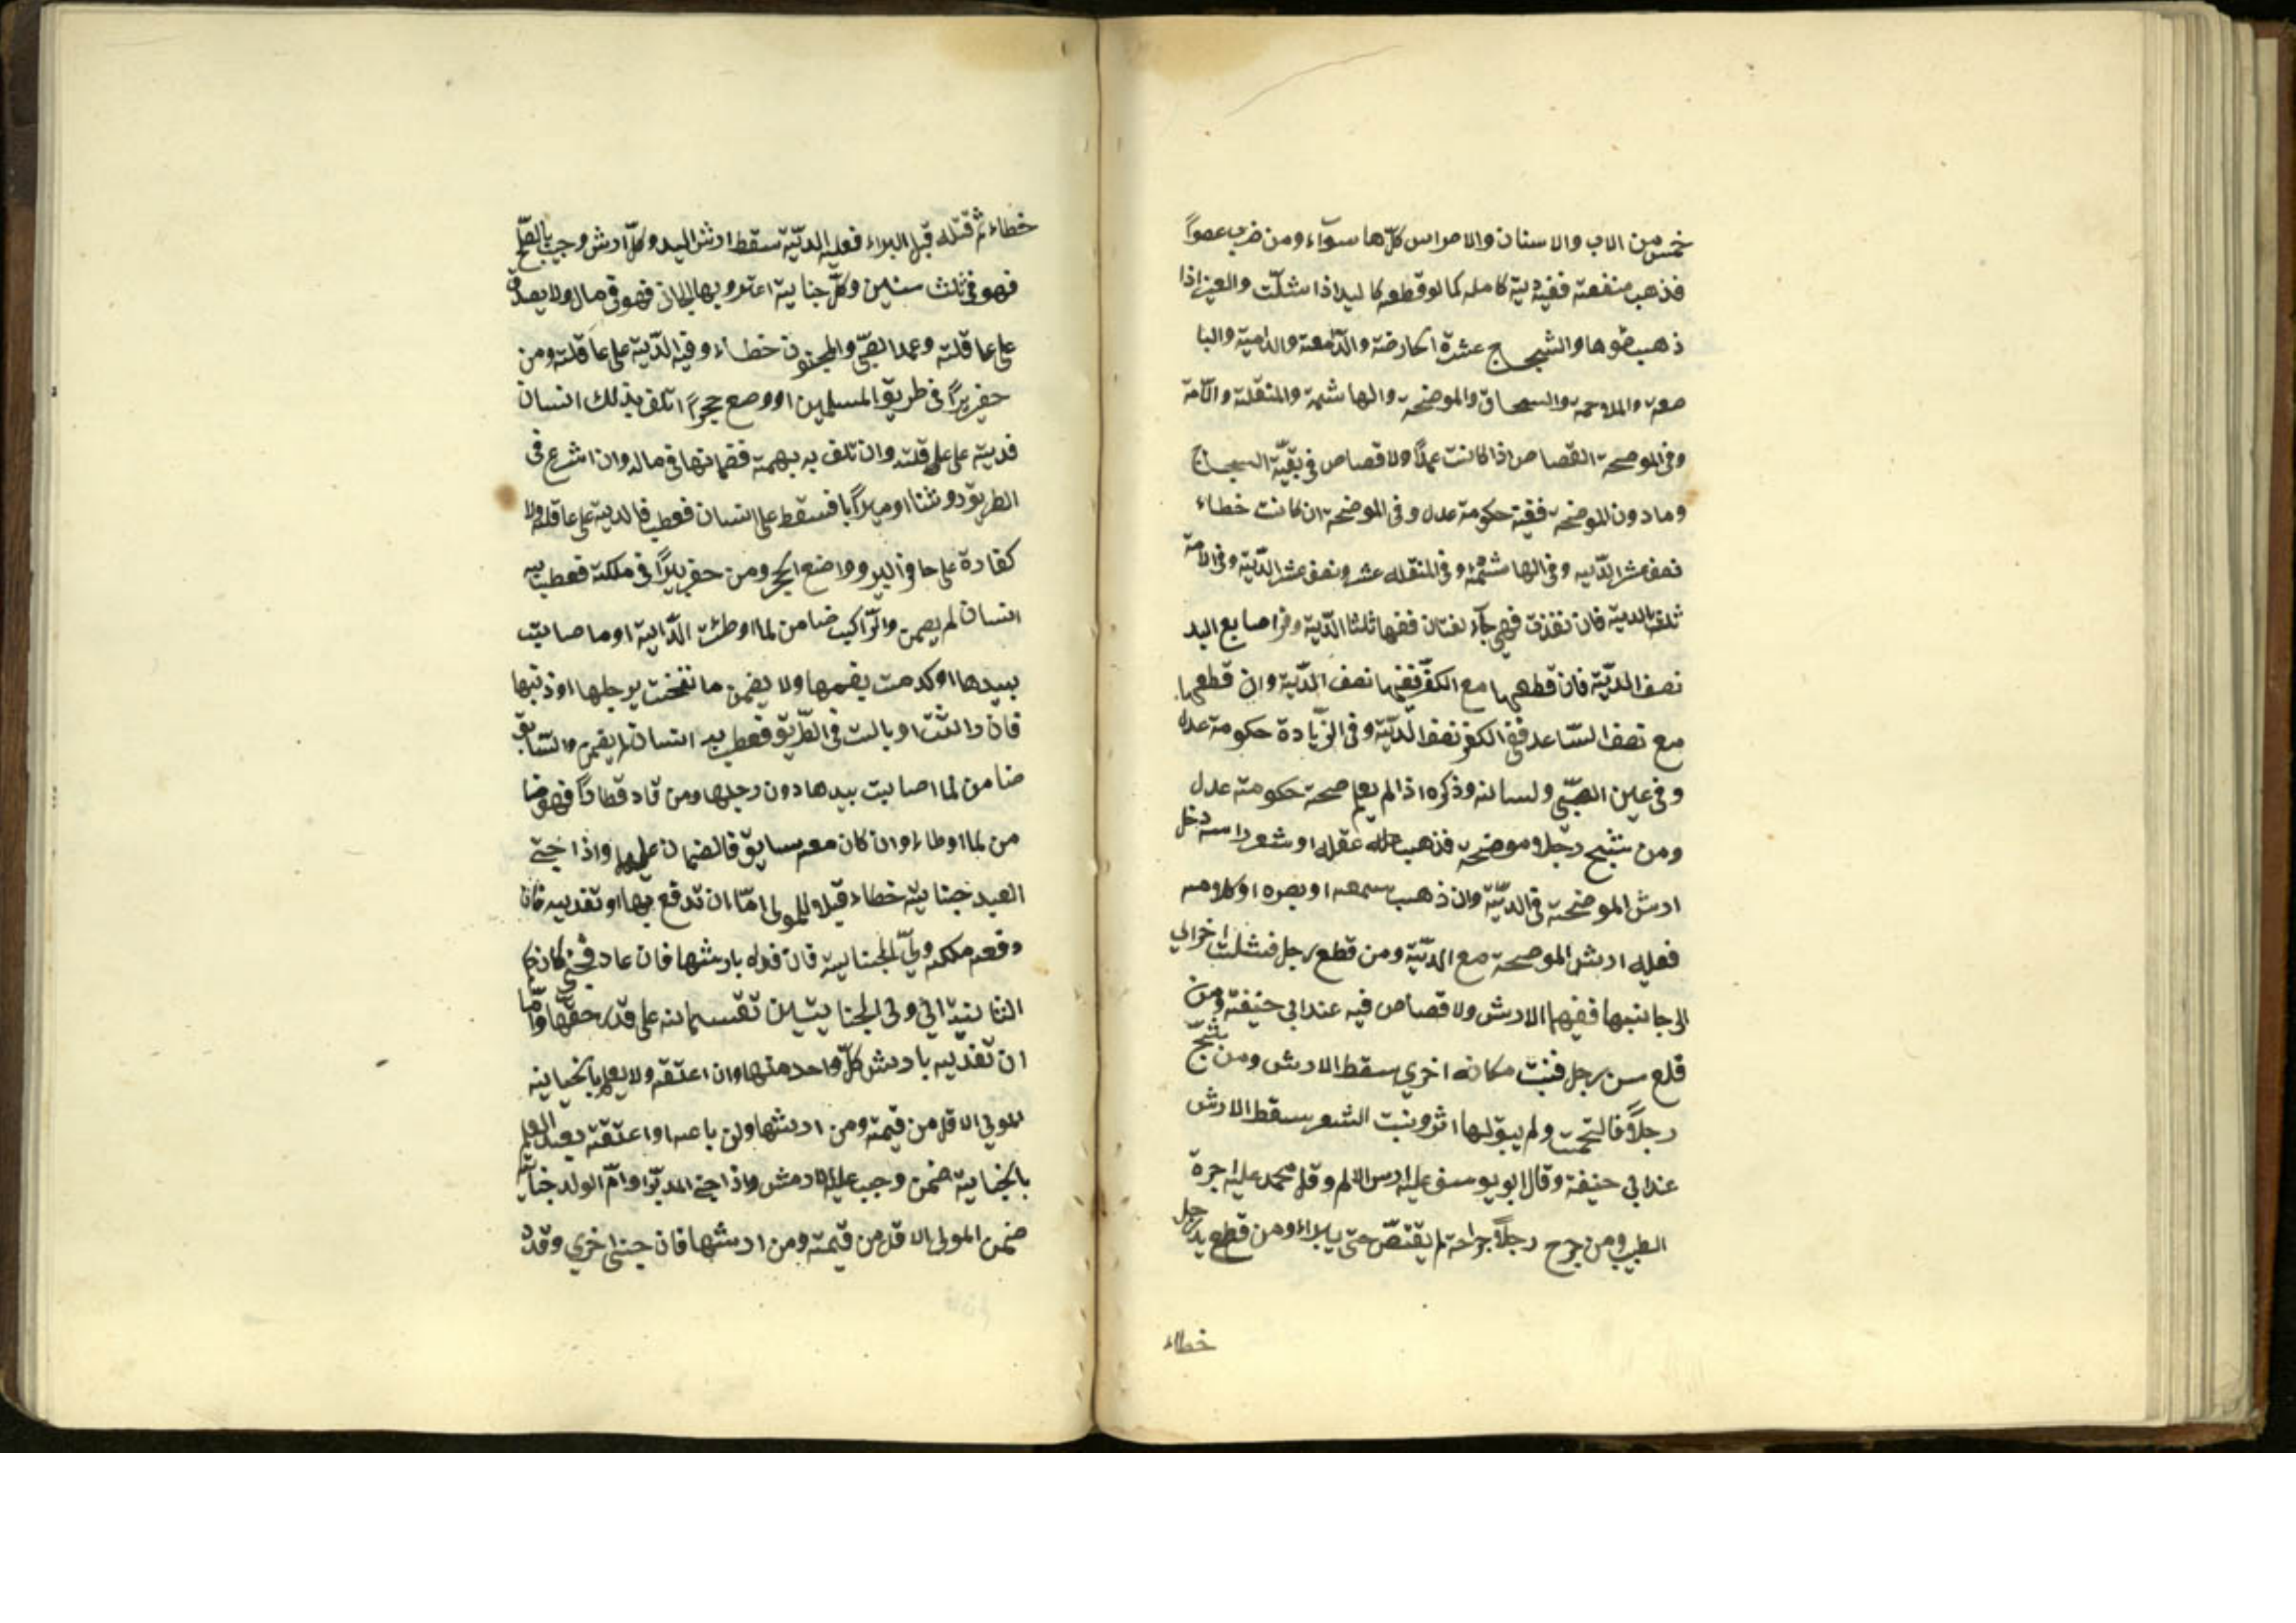 خمس من الابل والاسنان والاضراس كلّها سوآء ومن ضرب عضواً
فذهب منفعته ففيه دية كاملة كما لو قطعه كاليد اذا شلّت والعين اذا
ذهب ضوها والشجاج عشرة الحارضة والدّامعة والدامية والبا
ضعة والملاحمة والسمحاق والموضحة والهاشمة والمنقلة والآمّة
وفي الموضحة القصاص اذا كانت عمداً ولا قصاص في بقيّة الشجاج
وما دون الموضحة ففيه حكومة عدل وفي الموضحة ان كانت خطاء
نصف عشر الدّية وفي الهاشمة وفي المنقله عشر ونصف عشر الدّية وفي الامّة
ثلث الدية فان نفذت فهي جآءفتان ففيها ثلثا الدّية وفي اصابع اليد
نصف الديّة فان قطعها مع الكفّ ففيها نصف الدّية وان قطعها
مع نصف السّاعد ففي الكف نصف الدّيّة وفي الزّيادة حكومة عدل
وفي عين الصّبّي ولسانه وذكره اذا لم يعلم صحته حكومة عدل
ومن شجّ رجلا موضحة فذهب عقله او شعر راسه دخل
ارش الموضحة في الديّة وان ذهب سمعه او بصره او كلامه
فعليه ارش الموضحة مع الديّة ومن قطع رجل فشلت اخرى
الى جانبها ففيهما الارش ولا قصاص فيه عند ابي حنيفة ومن
قلع سن رجل فنبت مكانه اخرى سقط الارش ومن شجّ
رجلاً فالتحمت ولم يبق لها اثر ونبت الشعر سقط الارش
عند ابي حنيفة وقال ابو يوسف عليه ارش الالم وقال محمد عليه اجرة
الطبيب ومن جرح رجلاً جراحة لم يقتصّ حتى يبراء ومن قطع يد رجل
خطاء
خطاء ثم قتله قبل البراء فعليه الديّة سقط ارش اليد وكلّ ارش وجب بالصّلح
فهو في ثلث سنين وكلّ جناية اعترو بها الجان فهو في مال ولا يصدّق
على عاقلته وعمد الصّبي والمجنون خطاء وفيه الدّية على عاقلته ومن
حفر بيراً في طريق المسلمين او وضع حجراً اتلف بذلك انسان
فديته على عاقلته وان تلف به بهيمة فضمانها في ماله وان اشرع في
الطريق دوشنا او ميزاباً فسقط على انسان فعطب فالدية على عاقلته ولا
كفارة على حافر البير وواضع الحجر ومن حفر بيراً في ملكه فعطب به
انسان لم يضمن والرّاكب ضامن لما اوطئت الدّابة او ما اصابت
بيدها او كدمت بفمها ولا يضمن ما نفحت برجلها او ذنبها
فان راثت او بالت في الطّريق فعطب به انسان لم يضمن والسّايق
ضامن لما اصابت بيدها دون رجلها ومن قاد قطاراً فهو ضا
من لما اوطاء وان كان معه سايق فالضمان عليهما واذا جنى
العبد جناية خطاء قيل للمولى امّا ان تدفع بها او تفديه فان
دفعه ملكه وليّ الجناية فان فداه بارشها فان عاد فجنى كان حكم
الثانية الى ولي الجنايتين تقسمانه على قدر حقّهما وامّا
ان تفدّيه بارش كلّ واحد منهما وان اعتقه ولا يعلم بالجناية
المولي الاقل من قيمته ومن ارشها وان باعه او اعتقه بعد العلم
بالجناية ضمن وجب عليه الارش واذا جنى المدبّر او امّ الولد جناية
ضمن المولى الاقل من قيمته ومن ارشها فان جنى اخرى وقد